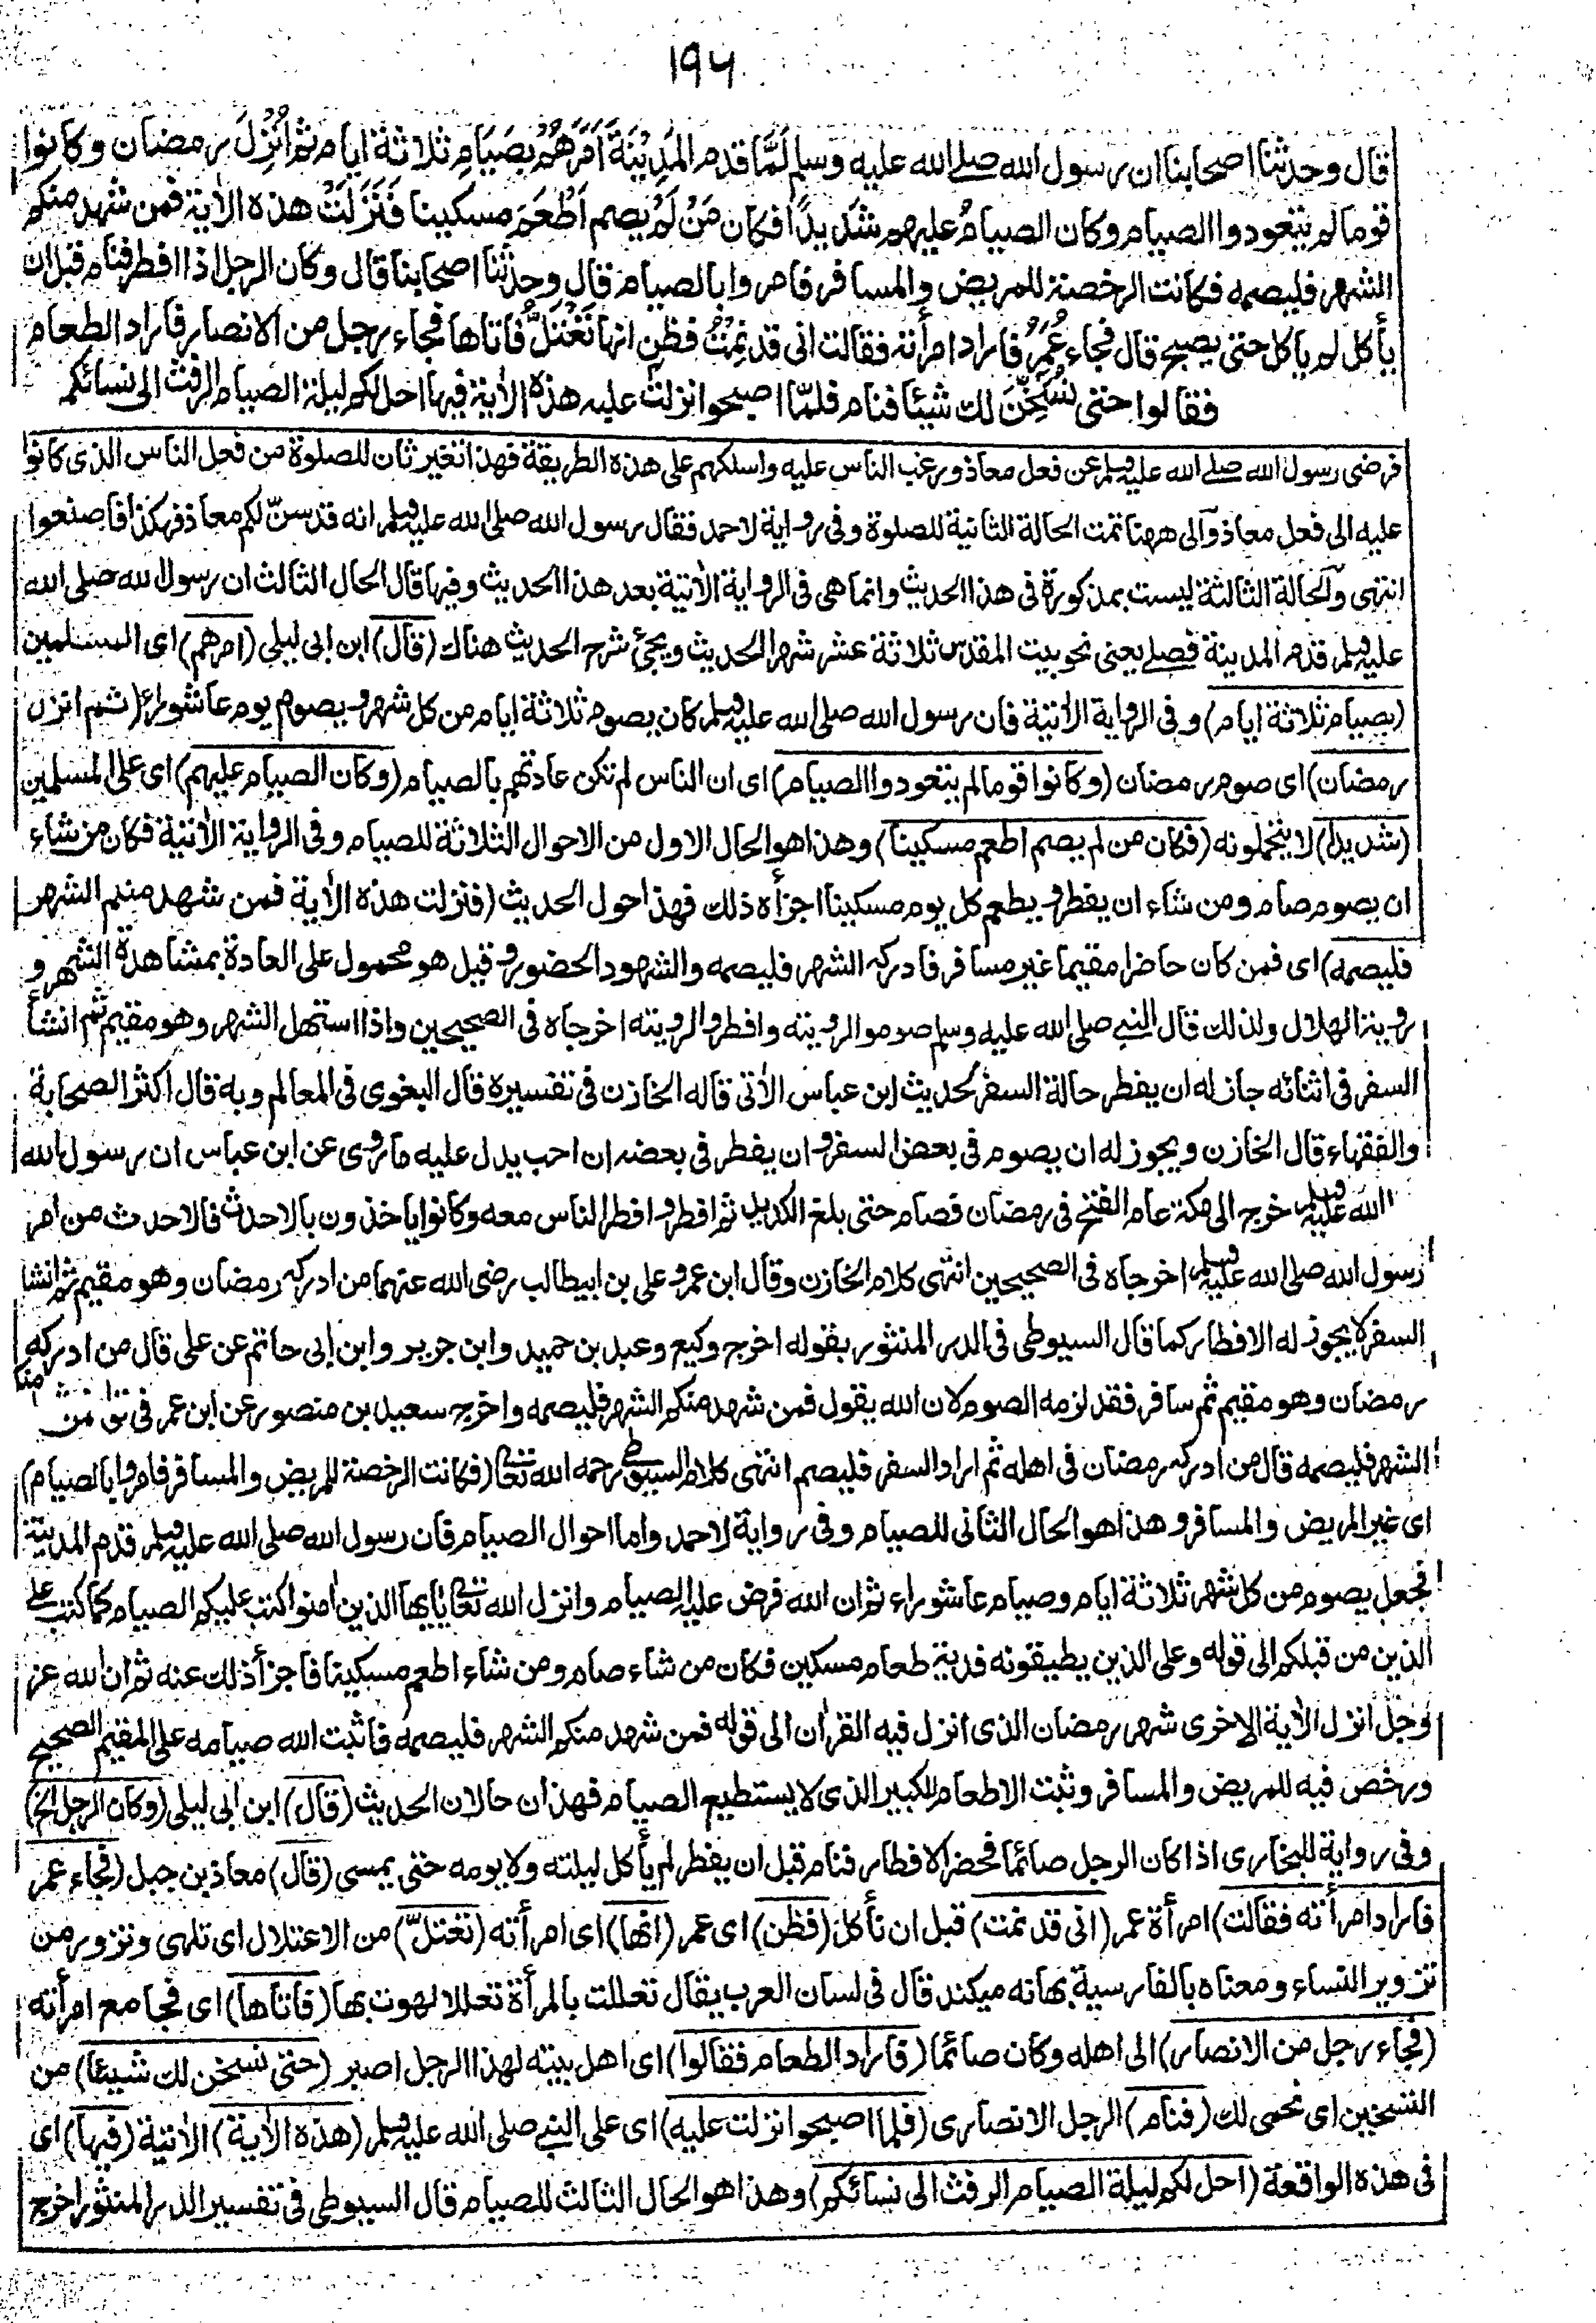 ۱۹۶
قال وحدثنا اصحابنا ان رسول الله صلے الله عليه وسلم لَمَّا قدم المَدِيْنَةَ اَمَرَهُمْ بِصِيَامِ ثلاثة ايام ثم اُنْزِلَ رمضان وكانوا
قوما لم يتعودوا الصيام وكان الصيامُ عليهم شَدِيدًا فكان مَنْ لَمْ يَصم اَطْعَمَ مسكينا فَنَزَلَتْ هذه الاٰية فمن شهد منكم
الشهر فليصمه فكانت الرخصة للمريض والمسافر فامروا بالصيام قال وحدثنا اصحابنا قال وكان الرجل اذا افطر فنام قبل ان
يأكل لم ياكل حتى يصبح قال فجاء عُمَرُ فاراد امرأته فقالت انى قد نِمْتُ فظن انها تَعْتَلُّ فاتاها فجاء رجل من الانصار فاراد الطعام
فقالوا حتى نُسَخِّنَ لك شيئا فنام فلمّا اصبحوا نزلت عليه هذه الاٰية فيها احل لكم ليلة الصيام الرفث الى نسائكم
فرضى رسول الله صلے الله عليه وسلم عن فعل معاذ ورغب الناس عليه واسلكهم على هذه الطريقة فهذا تغير ثان للصلوة من فعل الناس الذى كانوا
عليه الى فعل معاذ وآلى ههنا تمت الحالة الثانية للصلوة وفى رواية لاحمد فقال رسول الله صلى الله عليه وسلم انه قد سنّ لكم معاذ فهكذا فاصنعوا
انتهى وآلحالة الثالثة ليست بمذكورة فى هذا الحديث وانما هى فى الرواية الاٰتية بعد هذا الحديث وفيها قال الحال الثالث ان رسول الله صلى الله
عليه وسلم قدم المدينة فصلے يعنى نحو بيت المقدس ثلاثة عشر شهرا الحديث ويجئ شرح الحديث هناك (قال) ابن ابى ليلى (امرهم) اى المسلمين
(بصيام ثلاثة ايام) وفى الرواية الاٰتية فان رسول الله صلى الله عليه وسلم كان يصوم ثلاثة ايام من كل شهر ويصوم يوم عاشوراء (ثم انزل
رمضان) اى صوم رمضان (وكانوا قوما لم يتعودوا الصيام) اى ان الناس لم تكن عادتهم بالصيام (وكان الصيام عليهم) اى على المسلمين
(شديدا) لا يتحملونه (فكان من لم يصم اطعم مسكينا) وهذا هو الحال الاول من الاحوال الثلاثة للصيام وفى الرواية الاٰتية فكان من شاء
ان يصوم صام ومن شاء ان يفطر ويطعم كل يوم مسكينا اجزأه ذلك فهذا حول الحديث (فنزلت هذه الاٰية فمن شهد منكم الشهر
فليصمه) اى فمن كان حاضرا مقيما غير مسافر فادركه الشهر فليصمه والشهود الحضور وقيل هو محمول على العادة بمشاهدة الشهر و
روية الهلال ولذلك قال النبے صلى الله عليه وسلم صوموا لرويته وافطروا لرويته اخرجاه فى الصحيحين واذا استهل الشهر وهو مقيم ثم انشأ
السفر فى اثنائه جاز له ان يفطر حالة السفر لحديث ابن عباس الاٰتى قاله الخازن فى تفسيره قال البغوى فى المعالم وبه قال اكثر الصحابة
والفقهاء قال الخازن ويجوز له ان يصوم فى بعض السفر وان يفطر فى بعضه ان احب يدل عليه ماروى عن ابن عباس ان رسول الله
الله عليه وسلم خرج الى مكة عام الفتح فى رمضان فصام حتى بلغ الكديد ثم افطر وافطر الناس معه وكانوا ياخذون بالاحدث فالاحدث من امر
رسول الله صلى الله عليه وسلم اخرجاه فى الصحيحين انتهى كلام الخازن وقال ابن عمر وعلى بن ابيطالب رضى الله عنهما من ادركه رمضان وهو مقيم ثم انشا
السفر لا يجوز له الافطار كما قال السيوطى فى الدر المنثور بقوله اخرج وكيع وعبد بن حميد وابن جرير وابن ابى حاتم عن على قال من ادركه
رمضان وهو مقيم ثم سافر فقد لزمه الصوم لان الله يقول فمن شهد منكم الشهر فليصمه واخرج سعيد بن منصور عن ابن عمر فى منكم
الشهر فليصمه قال من ادركه رمضان فى اهله ثم اراد السفر فليصم انتهى كلام السيوطى رحمه الله تعالى (فكانت الرخصة للمريض والمسافر فامروا بالصيام)
اى غير المريض والمسافر وهذا هو الحال الثانى للصيام وفى رواية لاحمد واما احوال الصيام فان رسول الله صلى الله عليه وسلم قدم المدينة
فجعل يصوم من كل شهر ثلاثة ايام وصيام عاشوراء ثم ان الله فرض عليه الصيام وانزل الله تعالى يايها الذين اٰمنوا كتب عليكم الصيام كما كتب على
الذين من قبلكم الى قوله وعلى الذين يطيقونه فدية طعام مسكين فكان من شاء صام ومن شاء اطعم مسكينا فاجزأ ذلك عنه ثم ان الله عز
وجل انزل الاٰية الاخرى شهر رمضان الذى انزل فيه القراٰن الى قوله فمن شهد منكم الشهر فليصمه فاثبت الله صيامه على المقيم الصحيح
ورخص فيه للمريض والمسافر وثبت الاطعام للكبير الذى لا يستطيع الصيام فهذان حالان الحديث (قال) ابن ابى ليلى (وكان الرجل الخ)
وفى رواية للبخارى اذا كان الرجل صائما فحضر الافطار فنام قبل ان يفطر لم يأكل ليلته ولا يومه حتى يمسى (قال) معاذ بن جبل (فجاء عمر
فاراد امرأته فقالت) امرأة عمر (انى قد نمت) قبل ان تأكل (فظن) اى عمر (انها) اى امرأته (تعتلّ) من الاعتلال اى تلهى وتزور من
تزوير النساء ومعناه بالفارسية بهانه ميكند قال فى لسان العرب يقال تعللت بالمرأة تعللا لهوت بها (فاتاها) اى فجامع امرأته
(فجاء رجل من الانصار) الى اهله وكان صائما (فاراد الطعام فقالوا) اى اهل بيته لهذا الرجل اصبر (حتى نسخن لك شيئا) من
التسخين اى نحمى لك (فنام) الرجل الانصارى (فلما اصبحوا نزلت عليه) اى على النبے صلى الله عليه وسلم (هذه الاٰية) الاٰتية (فيها) اى
فى هذه الواقعة (احل لكم ليلة الصيام الرفث الى نسائكم) وهذا هو الحال الثالث للصيام قال السيوطى فى تفسير الدر المنثور اخرج